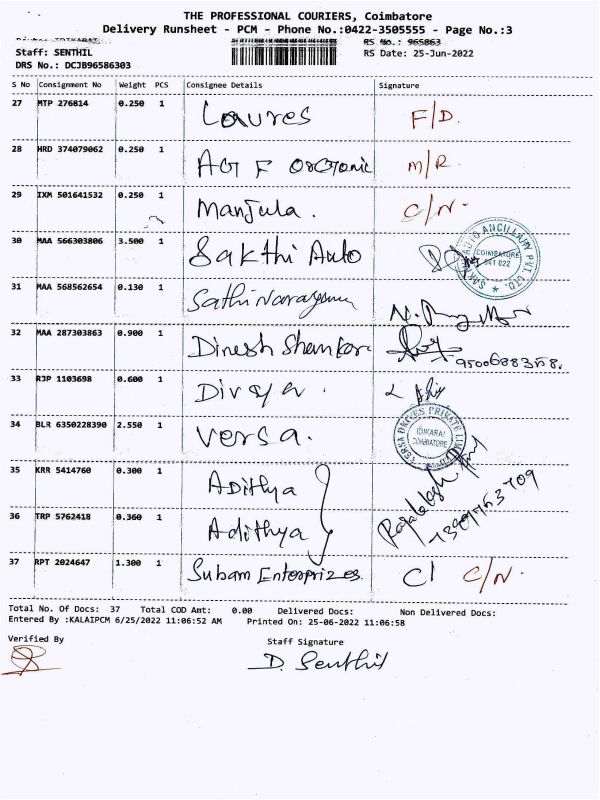 THE PROFESSIONAL COURIERS, Coimbatore
Delivery Runsheet - PCM - Phone No.:0422-3505555 - Page No.:3
RS No.: 965863
Staff: SENTHIL RS Date: 25-Jun-2022
DRS No.: DCJB96586303
S No Consignment No Weight PCS Consignee Details Signature
27 MTP 276814 0.250 1 Laures F/D.
28 HRD 374079062 0.250 1 AGT F Orgonic M/R.
29 IXM 501641532 0.250 1 Manjula. C/N.
30 MAA 566303806 3.500 1 Sakthi Auto
SAKTHI AUTO ANCILLARY PVT. LTD. COIMBATORE
31 MAA 568562654 0.130 1 Sathi Narayanan
32 MAA 287303863 0.900 1 Dinesh Shankar
33 RJP 1103698 0.600 1 Divaya.
34 BLR 6350228390 2.550 1 Versa.
VERSA DRIVES PRIVATE LIMITED IDIKARAI COIMBATORE
35 KRR 5414760 0.300 1 Adithya
36 TRP 5762418 0.360 1 Adithya
37 RPT 2024647 1.300 1 Subam Enterprizes. C/N.
Total No. Of Docs: 37 Total COD Amt: 0.00 Delivered Docs: Non Delivered Docs:
Entered By :KALAIPCM 6/25/2022 11:06:52 AM Printed On: 25-06-2022 11:06:58
Verified By Staff Signature
D. Senthil